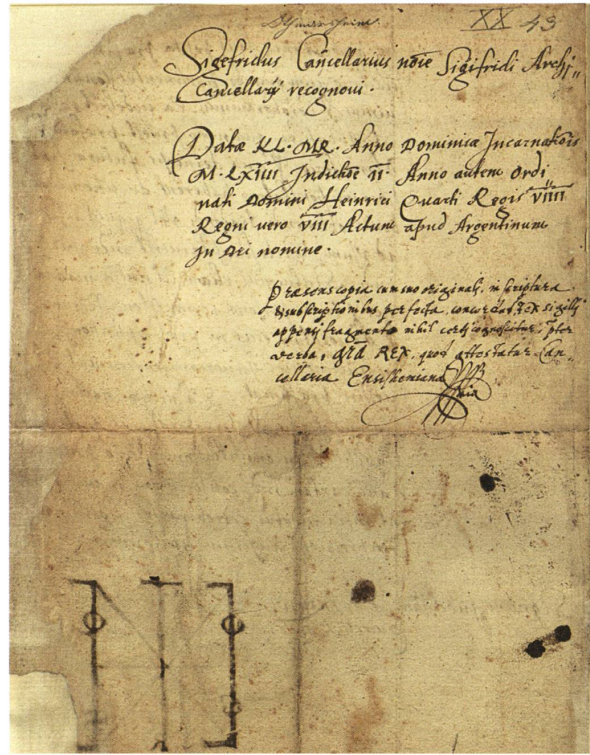 XX 43
Sigefridus Cancellarius noie Sigifridi Archi„
Cancellarÿ recognoui.
Datæ KL. MR. Anno Dominicæ Incarnatiois
M. LXIIII Indictioe II. Anno autem ordi
nati Domini Heinrici Quarti Regis VIIII
Regni uero VIII Actum apud Argentinum
in Dei nomine.
Præsens copia cum suo originali, in scriptura
& subscriptionibus perfecta, concordat, Ex sigilli
appensi fragmento nihil certi cognoscitur, pter
verba, GRA REX. quod attestatur Can„
cellaria Ensisheniana